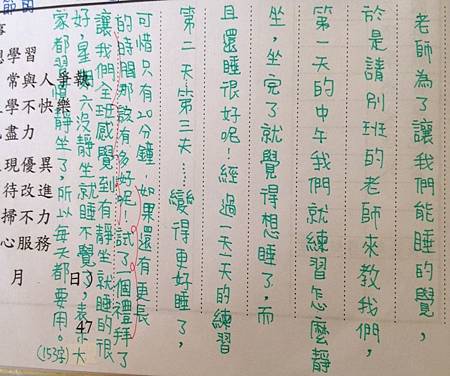 老師為了讓我們能睡的覺，
於是請別班的老師來教我們，
第一天的中午我們就練習怎麼靜
坐，坐完了就覺得想睡了，而
且還睡很好呢！經過一天一天的練習
第二天第三天…變得更好睡了，
可惜只有20分鐘，如果還有更長
的時間那該有多好呢！試了一個禮拜了
讓我們全班感覺到有靜坐就睡的很
好，星期六沒靜坐就睡不覺了，表示大
家都習慣靜坐了，所以每天都要用。
(153字)
學習
常與人爭執
學不快樂
盡力
現優異
待改進
掃不力
心服務
月 日
47